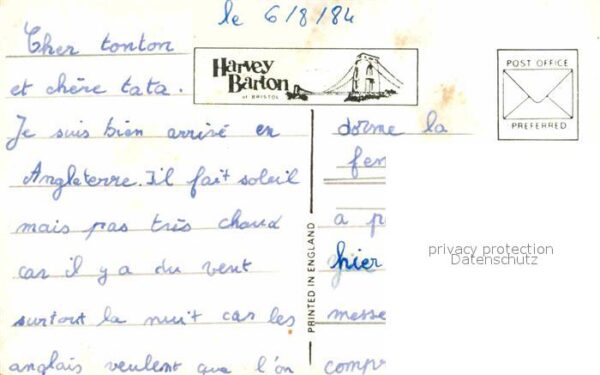 le 6/8/84
Cher tonton
et chère tata.
Je suis bien arrivé en
Angleterre. Il fait soleil
mais pas très chaud
car il y a du vent
surtout la nuit car les
anglais veulent que l'on
Harvey
Barton
of BRISTOL
PRINTED IN ENGLAND
POST OFFICE
PREFERRED
dorme la
fen
a p
hier
messe
compr
privacy protection
Datenschutz